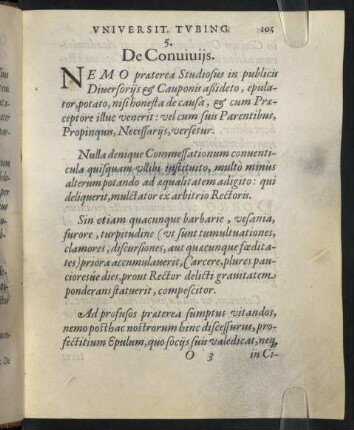 VNIVERSIT. TVBING. 105
5.
De Conuiuijs.
NEMO præterea Studiosus in publicis
Diuersorijs & Cauponis assideto, epula-
tor, potato, nisi honesta de causa, & cum Præ-
ceptore illuc venerit: vel cum suis Parentibus,
Propinquis, Necessarijs, versetur.
Nulla denique Commessationum conuenti-
cula quisquam vllibi instituito, multò minùs
alterum potando ad æqualitatem adigito: qui
deliquerit, mulctator ex arbitrio Rectoris.
Sin etiam quacunque barbarie, vesania,
furore, turpitudine (vt sunt tumultuationes,
clamores, discursiones, aut quæcunque fœdita-
tes) priora accumulauerit, Carcere, plures pau-
cioresue dies, prout Rector delicti grauitatem
ponderans statuerit, compescitor.
Ad profusos præterea sumptus vitandos,
nemo posthac nostrorum hinc discessurus, pro-
fectitium Epulum, quo socijs suis valedicat, neq,
O 3 in Ci-